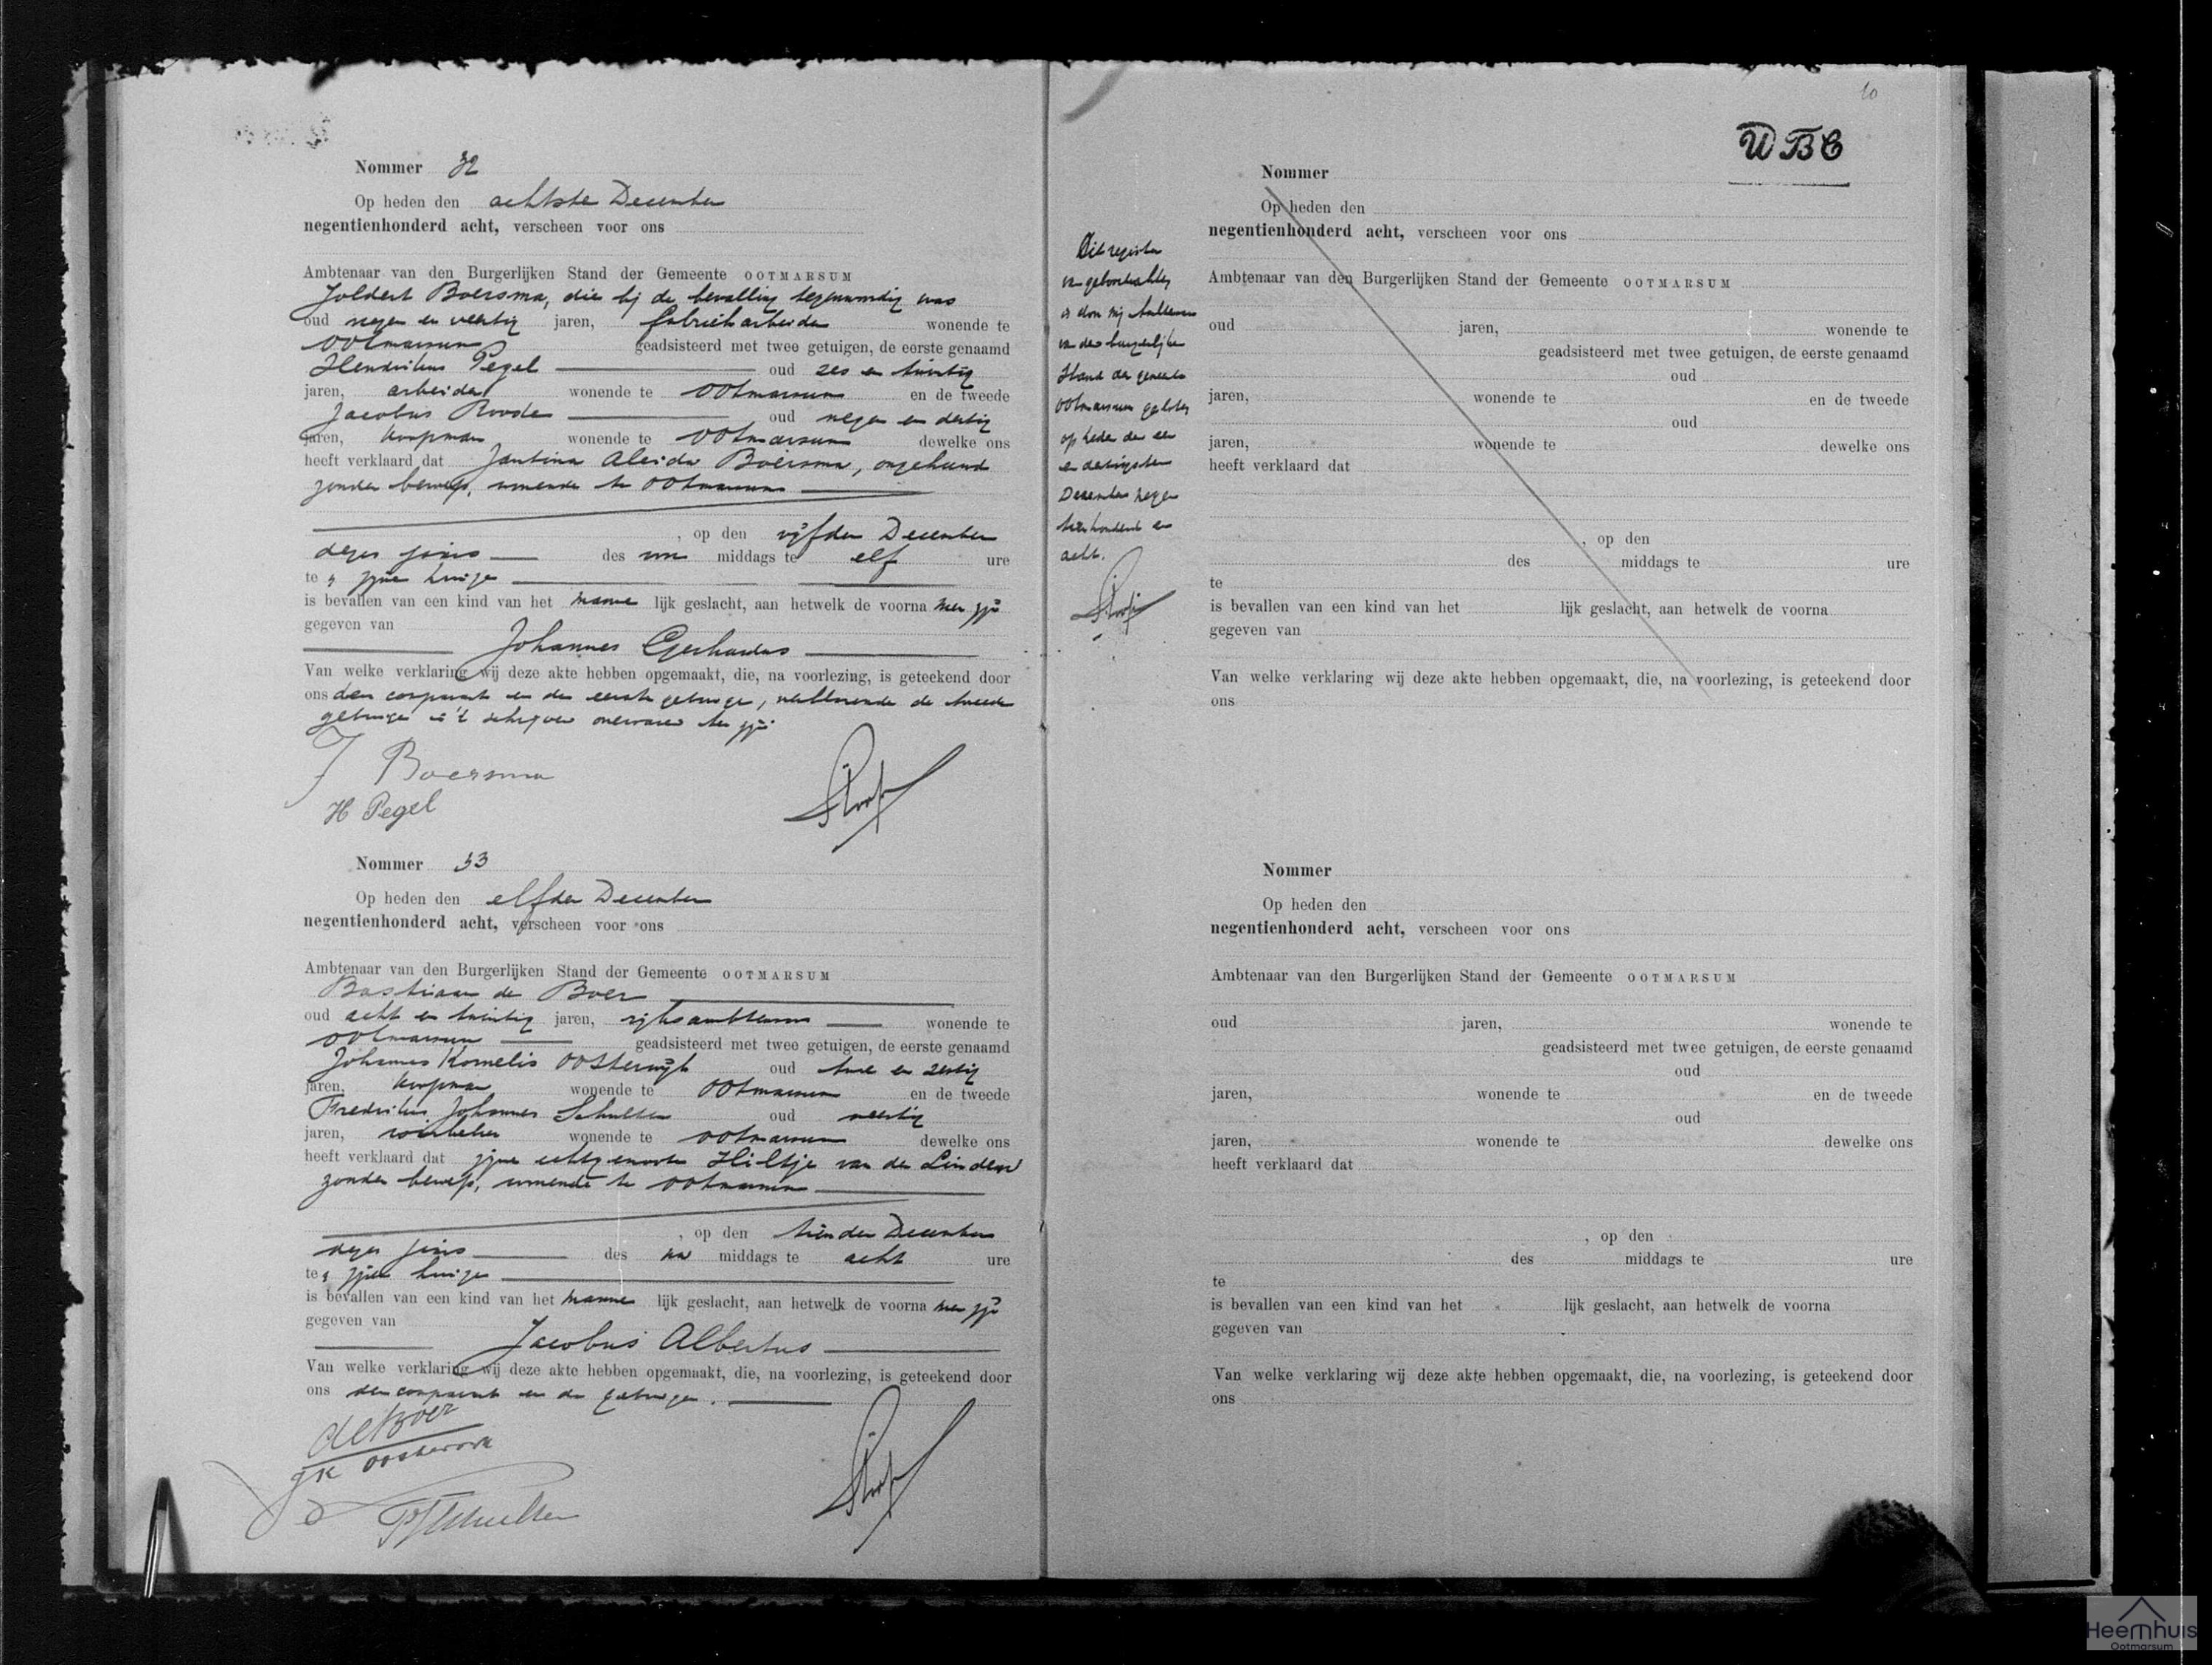 Nommer 32
Op heden den achtste December
negentienhonderd acht, verscheen voor ons
Ambtenaar van den Burgerlijken Stand der Gemeente OOTMARSUM
Joldert Boersma, die bij de bevalling tegenwoordig was
oud negen en veertig jaren, fabriekarbeider wonende te
Ootmarsum geadsisteerd met twee getuigen, de eerste genaamd
Hendrikus Pegel oud zes en twintig
jaren, arbeider wonende te Ootmarsum en de tweede
Jacobus Roode oud negen en dertig
jaren, koopman wonende te Ootmarsum dewelke ons
heeft verklaard dat Jantina Aleida Boersma, ongehuwd
zonder beroep, wonende te Ootmarsum
, op den vijfden December
dezes jaars des voor middags te elf ure
te zijnen huize
is bevallen van een kind van het manne lijk geslacht, aan hetwelk de voorna men zijn
gegeven van
Johannes Gerhardus
Van welke verklaring wij deze akte hebben opgemaakt, die, na voorlezing, is geteekend door
ons den comparant en den eerste getuige, verklarende de tweede
getuige in 't schrijven onervaren te zijn
J Boersma
H Pegel
Nommer 33
Op heden den elfden December
negentienhonderd acht, verscheen voor ons
Ambtenaar van den Burgerlijken Stand der Gemeente OOTMARSUM
Bastiaan de Boer
oud acht en twintig jaren, rijksambtenaar wonende te
Ootmarsum geadsisteerd met twee getuigen, de eerste genaamd
Johannes Kornelis Oosterwijk oud twee en zestig
jaren, koopman wonende te Ootmarsum en de tweede
Fredrikus Johannes Schulten oud veertig
jaren, wonende te Ootmarsum dewelke ons
heeft verklaard dat zijne echtgenoote Hiltje van der Linden
zonder beroep, wonende te Ootmarsum
, op den tienden December
dezes jaars des na middags te acht ure
te zijnen huize
is bevallen van een kind van het manne lijk geslacht, aan hetwelk de voorna men zijn
gegeven van
Jacobus Albertus
Van welke verklaring wij deze akte hebben opgemaakt, die, na voorlezing, is geteekend door
ons den comparant en de getuigen.
de Boer
JK Oosterwijk
FJ Schulten
10
WBC
Dit register
van geboorteakten
is door mij ambtenaar
van den burgerlijken
Stand der gemeente
Ootmarsum gesloten
op heden den een
en dertigsten
December negen
tienhonderd en
acht.
Nommer
Op heden den
negentienhonderd acht, verscheen voor ons
Ambtenaar van den Burgerlijken Stand der Gemeente OOTMARSUM
oud jaren, wonende te
geadsisteerd met twee getuigen, de eerste genaamd
oud
jaren, wonende te en de tweede
oud
jaren, wonende te dewelke ons
heeft verklaard dat
, op den
des middags te ure
te
is bevallen van een kind van het lijk geslacht, aan hetwelk de voorna
gegeven van
Van welke verklaring wij deze akte hebben opgemaakt, die, na voorlezing, is geteekend door
ons
Nommer
Op heden den
negentienhonderd acht, verscheen voor ons
Ambtenaar van den Burgerlijken Stand der Gemeente OOTMARSUM
oud jaren, wonende te
geadsisteerd met twee getuigen, de eerste genaamd
oud
jaren, wonende te en de tweede
oud
jaren, wonende te dewelke ons
heeft verklaard dat
, op den
des middags te ure
te
is bevallen van een kind van het lijk geslacht, aan hetwelk de voorna
gegeven van
Van welke verklaring wij deze akte hebben opgemaakt, die, na voorlezing, is geteekend door
ons
Heemhuis
Ootmarsum